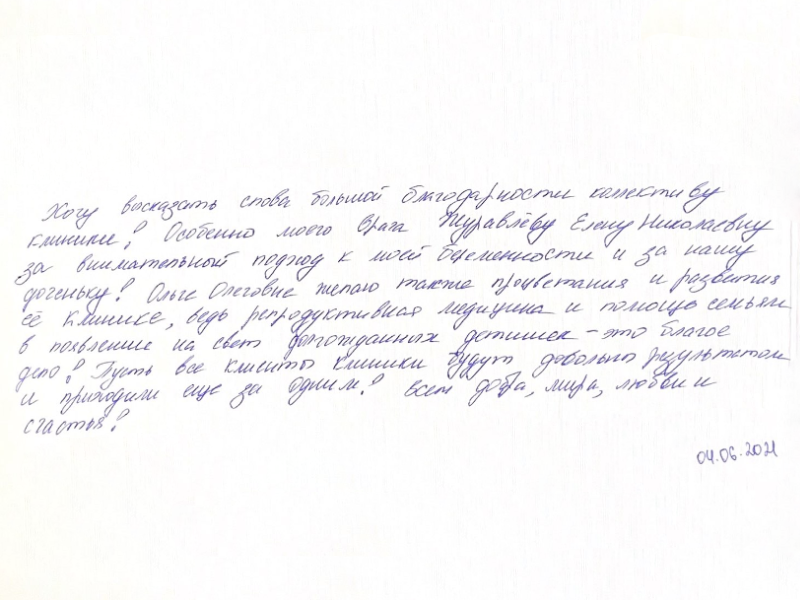 Хочу высказать слова большой благодарности коллективу
клиники! Особенно моего врача Журавлёву Елену Николаевну
за внимательный подход к моей беременности и за нашу
доченьку! Ольге Олеговне желаю также процветания и развития
её клинике, ведь репродуктивная медицина и помощь семьям
в появление на свет долгожданных детишек - это благое
дело! Пусть все клиенты клиники будут довольны результатом
и приходили еще за одним! Всем добра, мира, любви и
счастья!
04.06.2021